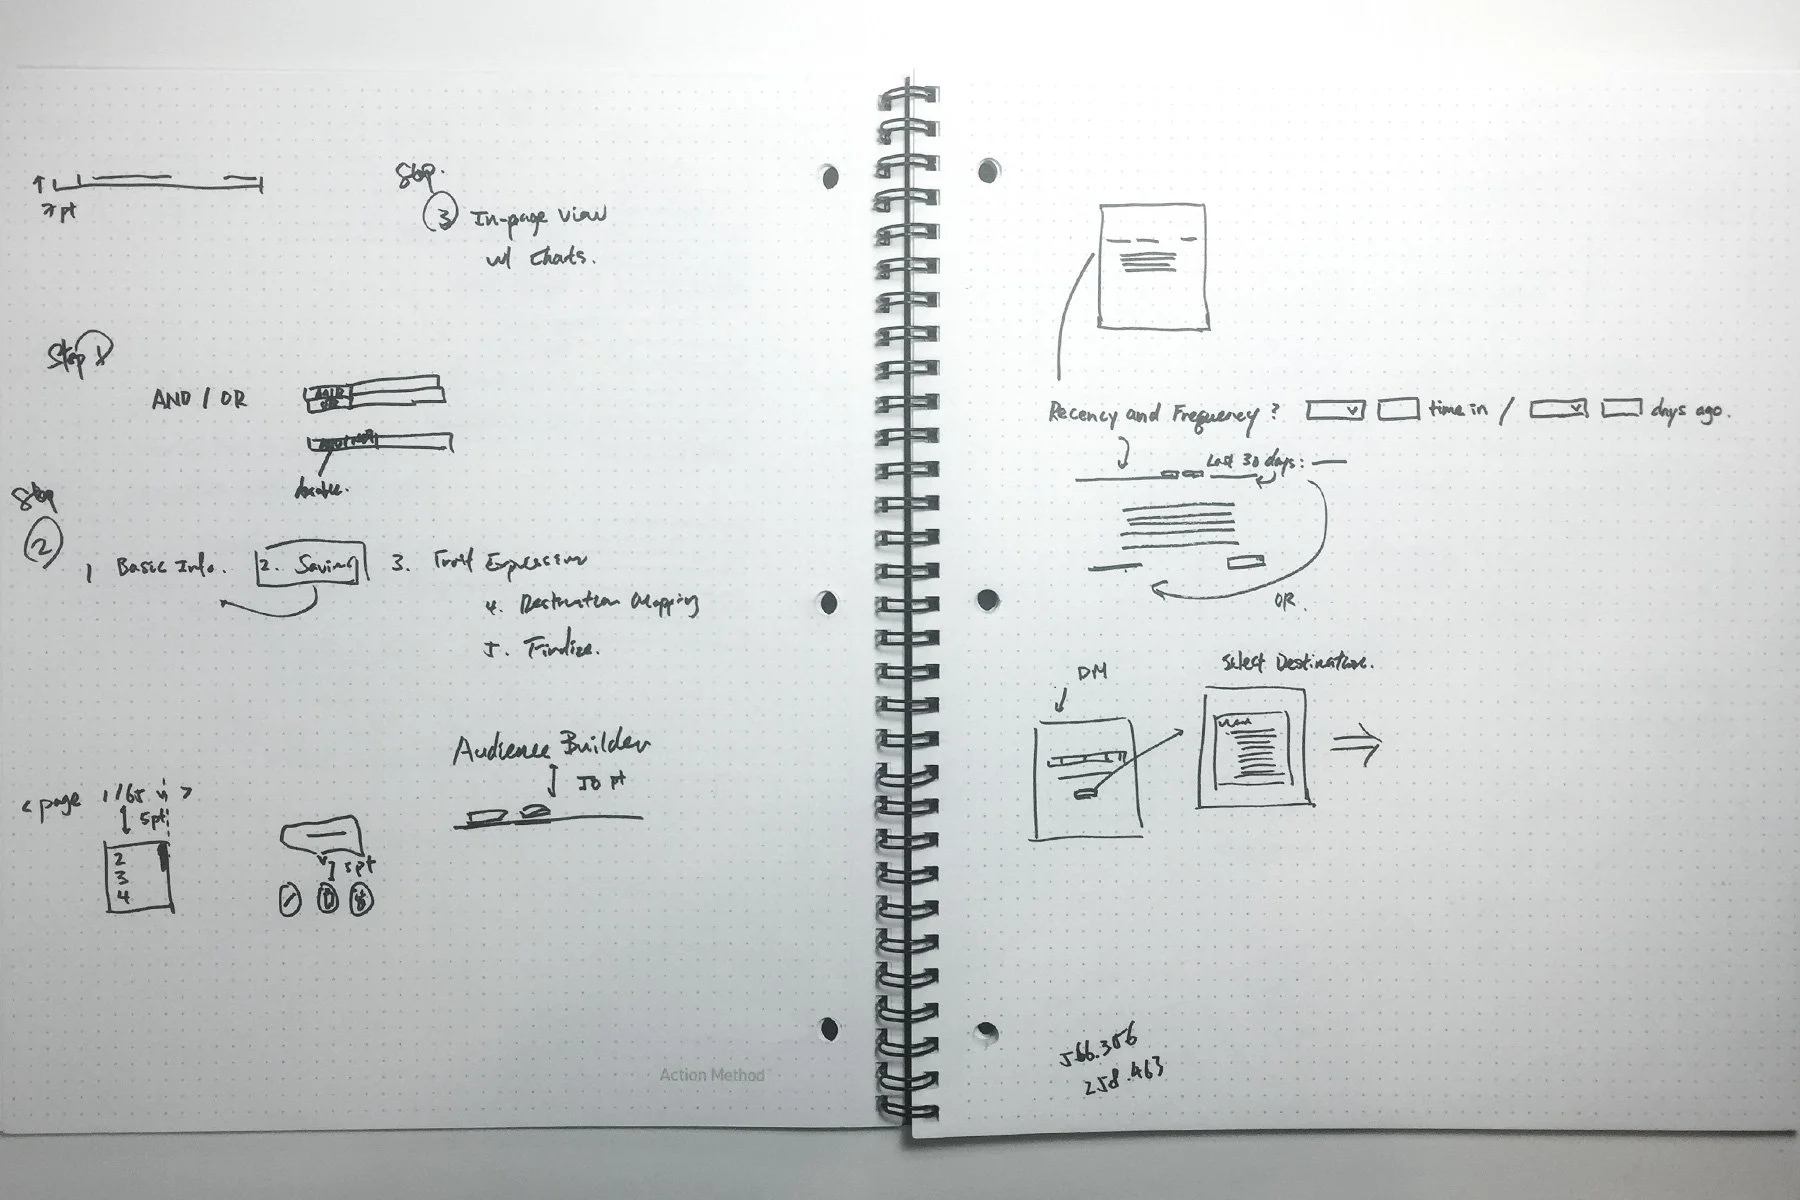 Step.
3 In-page view
w/ Charts.
Step 1
AND / OR
Step
2
1 Basic Info. 2. Saving 3. Trait Expression
4. Destination Mapping
5. Finalize.
Audience Builder
50 pt
< page 1/65 v >
5pt
2
3
4
5pt
Action Method
Recency and Frequency? time in / days ago.
Last 30 days:
OR.
DM
Select Destination.
566.306
258.463